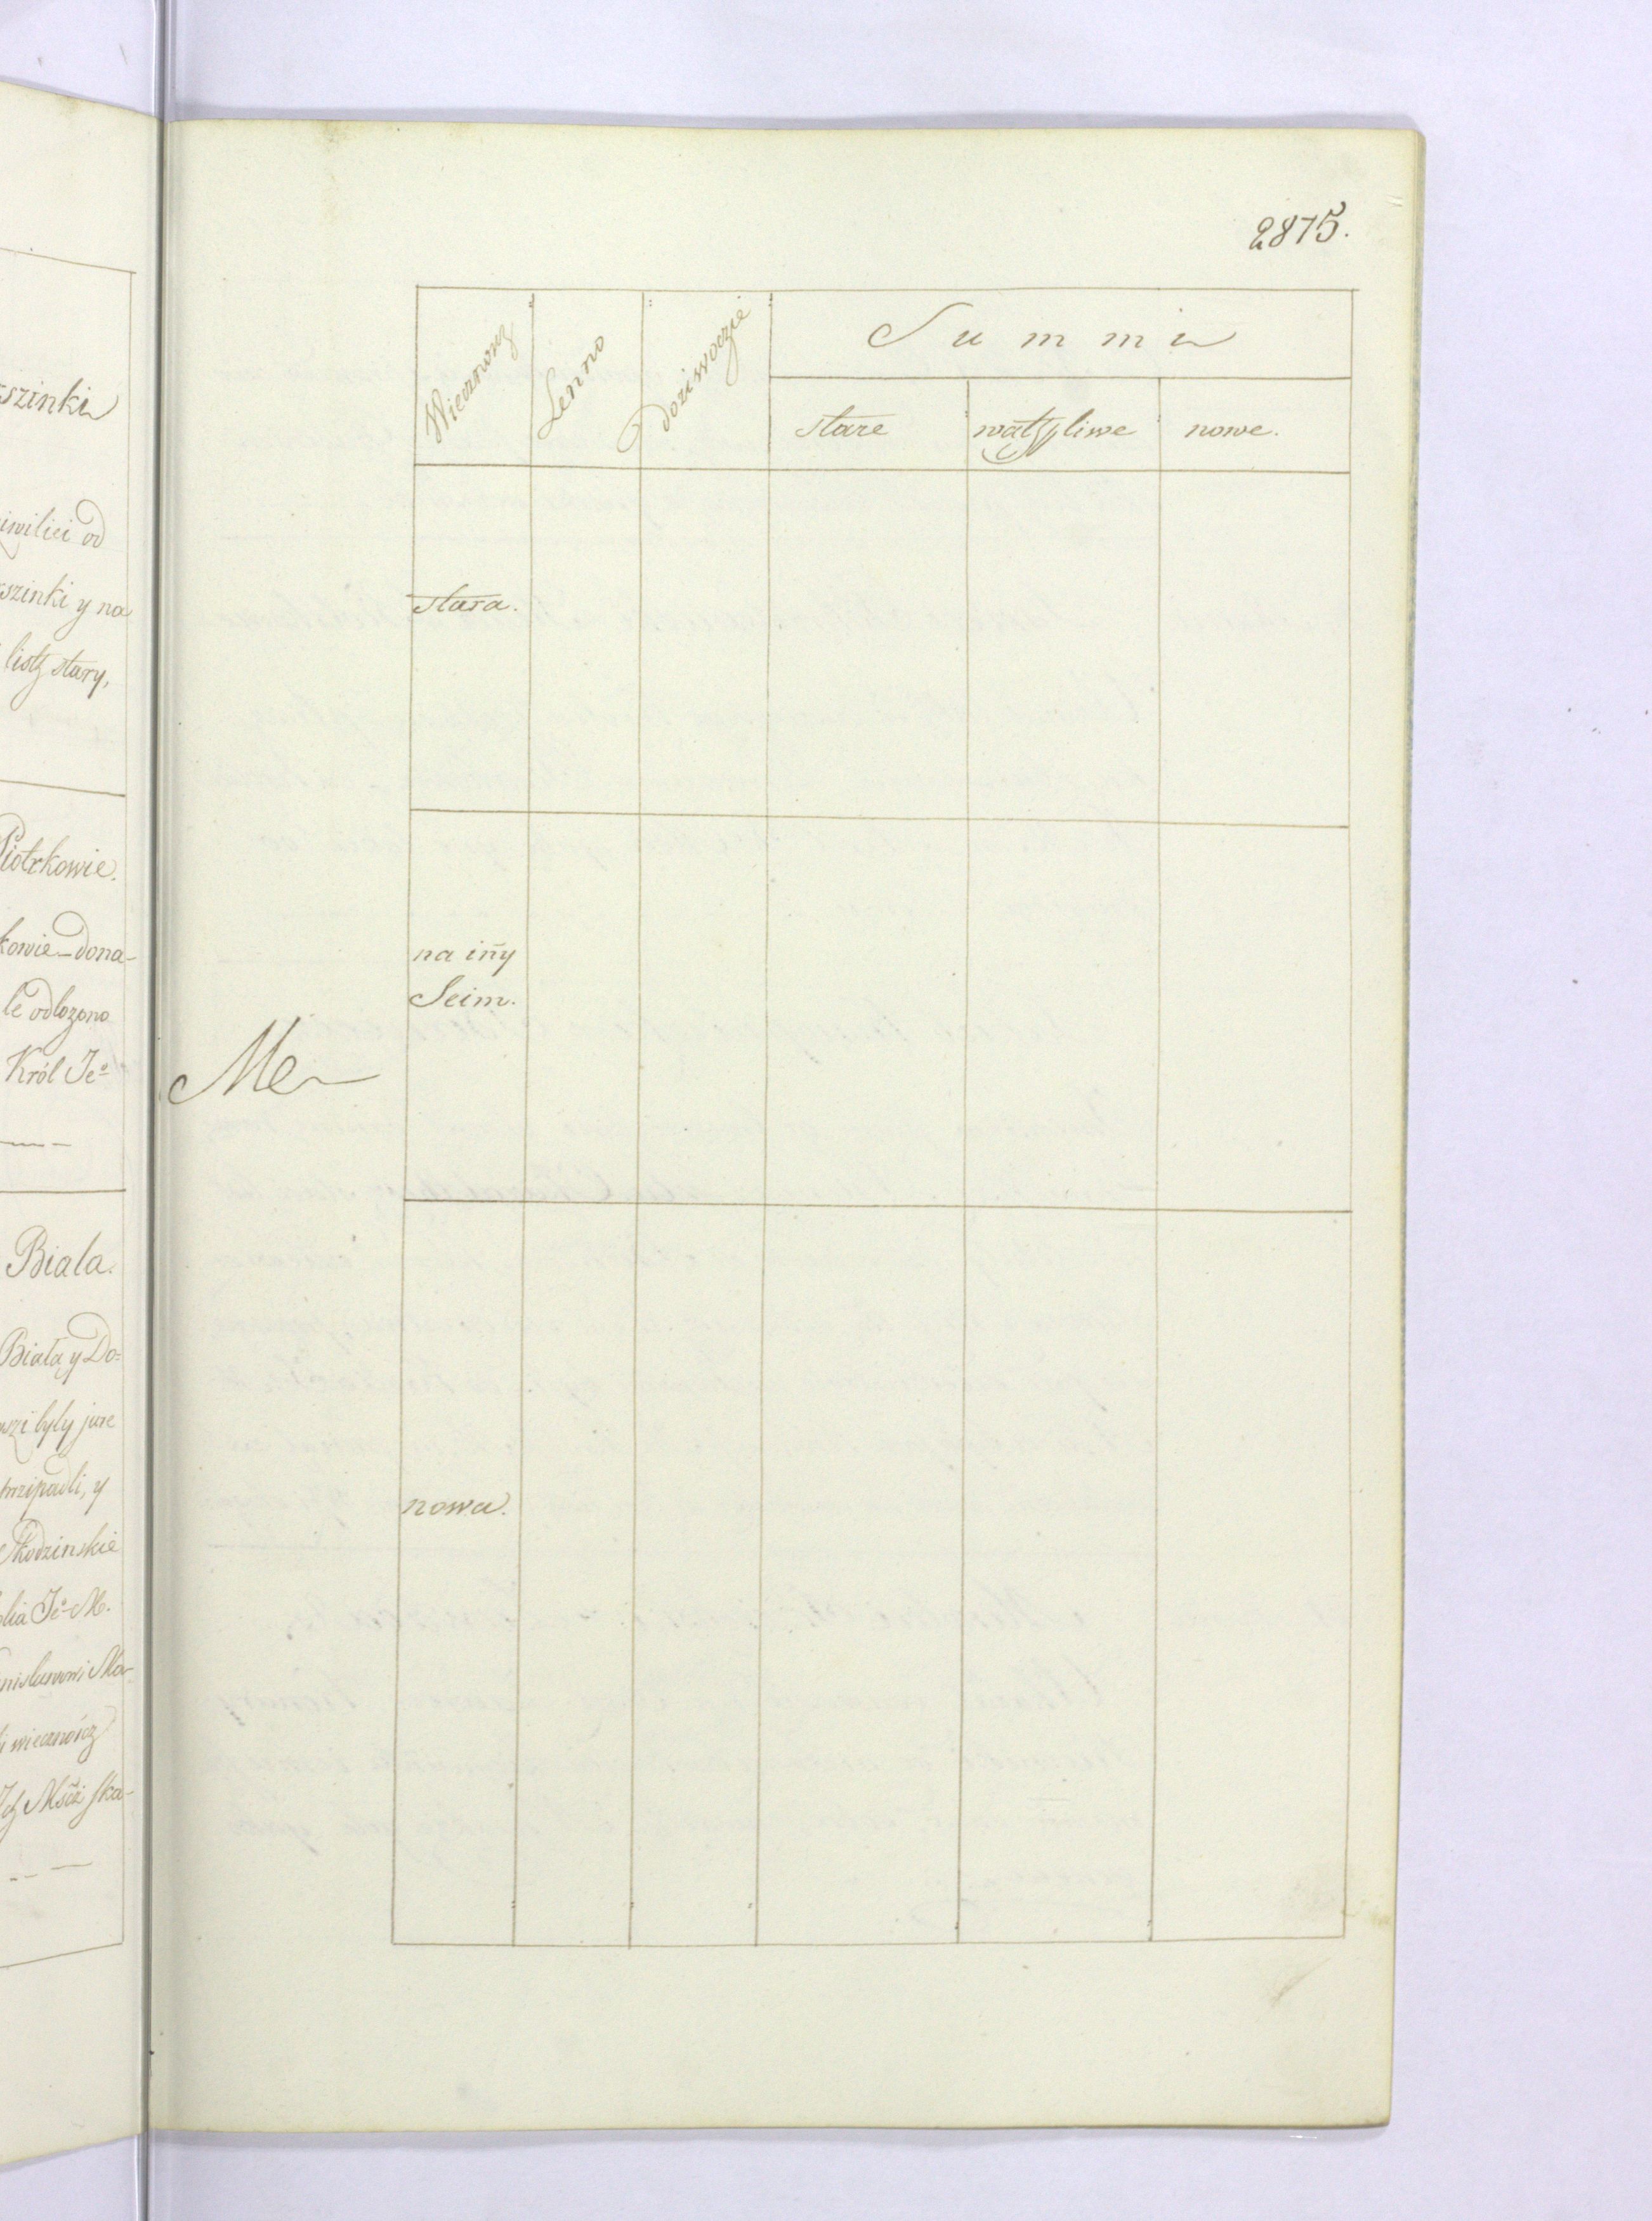 szinki
iwilici od
szinki y na
listz stary,
Piotrkowie.
kowie dona-
le odlozono
Król Jeº
Biala.
Biała y Do=
wszi były jure
przipadli, y
Skodzinskie
olia Jeº M.
nislawowi Ma-
i wiecznośćz
Jch Mści ska-
2875.
Wiecznoscz
Lenno
Doziwoczie
Summa
stare
wątpliwe
nowe.
stara.
na in̄y
Seim.
Me
nowa.